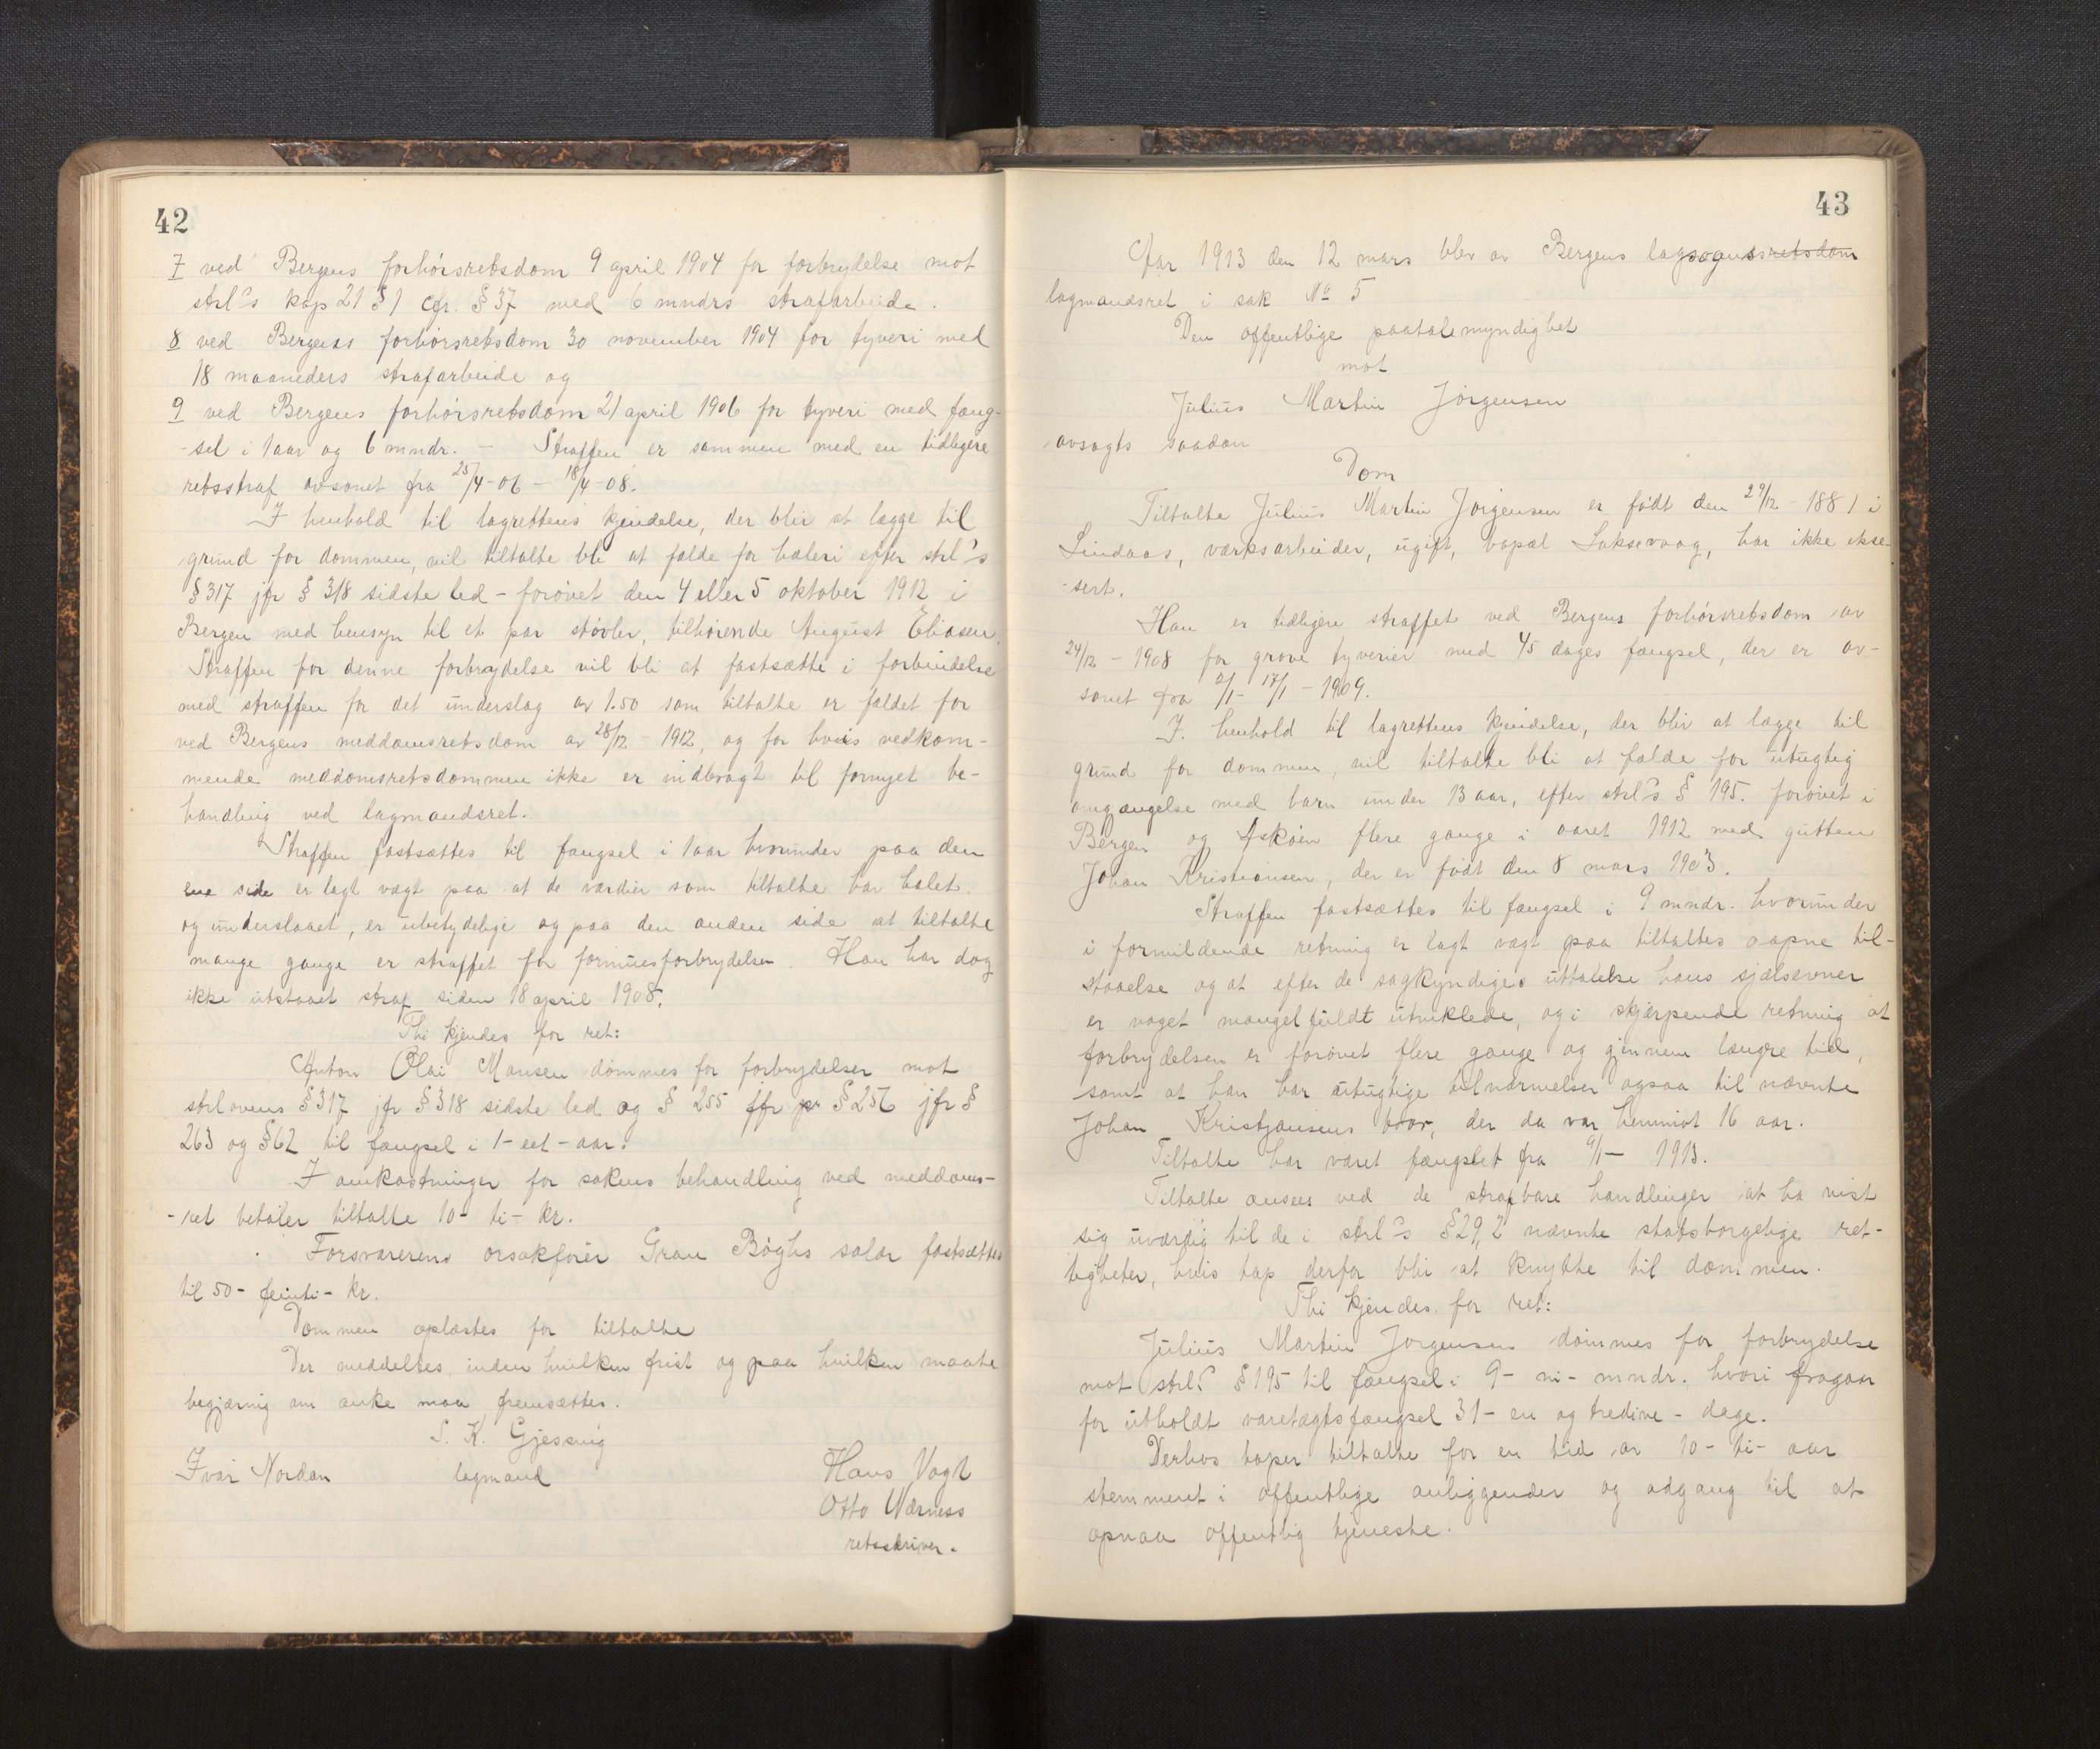 42
7 ved Bergens forhørsretsdom 9 april 1904 for forbrydelse mot
strl's kap 21 § 1 cfr. § 37 med 6 mndrs strafarbeide.
8 ved Bergens forhørsretsdom 30 november 1904 for tyveri med
18 maaneders strafarbeide og
9 ved Bergens forhørsretsdom 21 april 1906 for tyveri med fæng-
-sel i 1 aar og 6 mndr. - Straffen er sammen med en tidligere
retsstraf avsonet fra 25/4-06 - 18/4-08.
I henhold til lagrettens kjendelse, der blir at lægge til
grund for dommen, vil tiltalte bli at fælde for hæleri efter strl's
§ 317 jfr § 318 sidste led - forøvet den 4 eller 5 oktober 1912 i
Bergen med hensyn til et par støvler, tilhørende August Eliasen.
Straffen for denne forbrydelse vil bli at fastsætte i forbindelse
med straffen for det underslag av 1.50 som tiltalte er fældet for
ved Bergens meddomsretsdom av 28/12 - 1912, og for hvis vedkom-
mende meddomsretsdommen ikke er indbragt til fornyet be-
handling ved lagmandsret.
Straffen fastsættes til fængsel i 1 aar hvorunder paa den
ene side er lagt vægt paa at de værdier som tiltalte har hælet
og underslaaet, er ubetydelige og paa den anden side at tiltalte
mange gange er straffet for formuesforbrydelser. Han har dog
ikke utstaaet straf siden 18 april 1908.
Thi kjendes for ret:
Anton Olai Monsen dømmes for forbrydelser mot
strlovens § 317 jfr § 318 sidste led og § 255 jfr § 256 jfr §
263 og § 62 til fængsel i 1 - eet - aar.
I omkostninger for sakens behandling ved meddoms-
-ret betaler tiltalte 10 - ti - kr.
Forsvarerens orsakfører Gran Bøghs salær fastsættes
til 50 - femti - kr.
Dommen oplæstes for tiltalte
Der meddeltes inden hvilken frist og paa hvilken maate
begjæring om anke maa fremsættes.
S. K. Gjessing
Ivar Nordan lagmand Hans Vogt
Otto Wærness
retsskriver.
43
Aar 1913 den 12 mars blev av Bergens lagsognsretsdom
lagmandsret i sak No 5
Den offentlige paatalemyndighet
mot
Julius Martin Jørgensen
avsagts saadan
Dom
Tiltalte Julius Martin Jørgensen er født den 29/12 - 1881 i
Lindaas, værksarbeider, ugift, bopæl Laksevaag, har ikke ekse-
-sert.
Han er tidligere straffet ved Bergens forhørsretsdom av
24/12 - 1908 for grove tyverier med 45 dages fængsel, der er av-
sonet fra 2/1 - 17/1 - 1909.
I henhold til lagrettens kjendelse, der blir at lægge til
grund for dommen, vil tiltalte bli at fælde for utugtig
omgængelse med barn under 13 aar, efter strl's § 195. forøvet i
Bergen og Askøen flere gange i aaret 1912 med gutten
Johan Kristiansen, der er født den 8 mars 1903.
Straffen fastsættes til fængsel i 9 mndr. hvorunder
i formildende retning er lagt vægt paa tiltaltes aapne til-
staaelse og at efter de sagkyndiges uttalelse hans sjælsevner
er noget mangelfuldt utviklede, og i skjærpende retning at
forbrydelsen er forøvet flere gange og gjennem længre tid,
samt at han har utugtige tilnærmelser ogsaa til nævnte
Johan Kristjansens bror, der da var henimot 16 aar.
Tiltalte har været fængslet fra 9/1 - 1913.
Tiltalte ansees ved de strafbare handlinger at ha vist
sig uværdig til de i strl's § 29,2 nævnte statsborgelige ret-
tigheter, hvis tap derfor blir at knytte til dommen.
Thi kjendes for ret:
Julius Martin Jørgensen dømmes for forbrydelse
mot strl.s § 195 til fængsel i 9 - ni - mndr. hvori fragaar
for utholdt varetægtsfængsel 31 - en og tredive - dage.
Derhos taper tiltalte for en tid av 10 - ti - aar
stemmeret i offentlige anliggender og adgang til at
opnaa offentlig tjeneste.